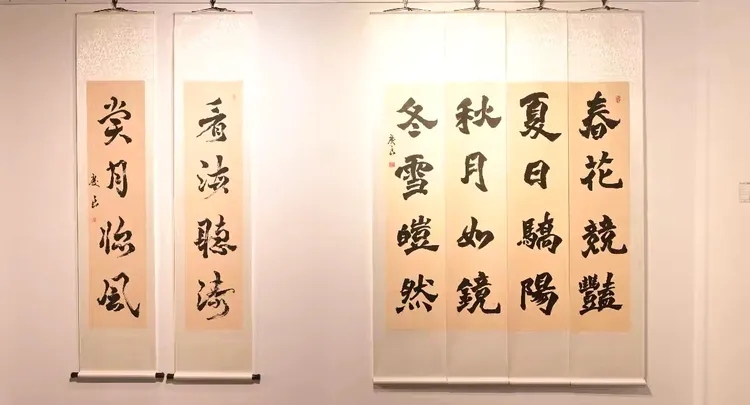 春花競豔
夏日驕陽
秋月如鏡
冬雪皚然
看海聽濤
賞月臨風